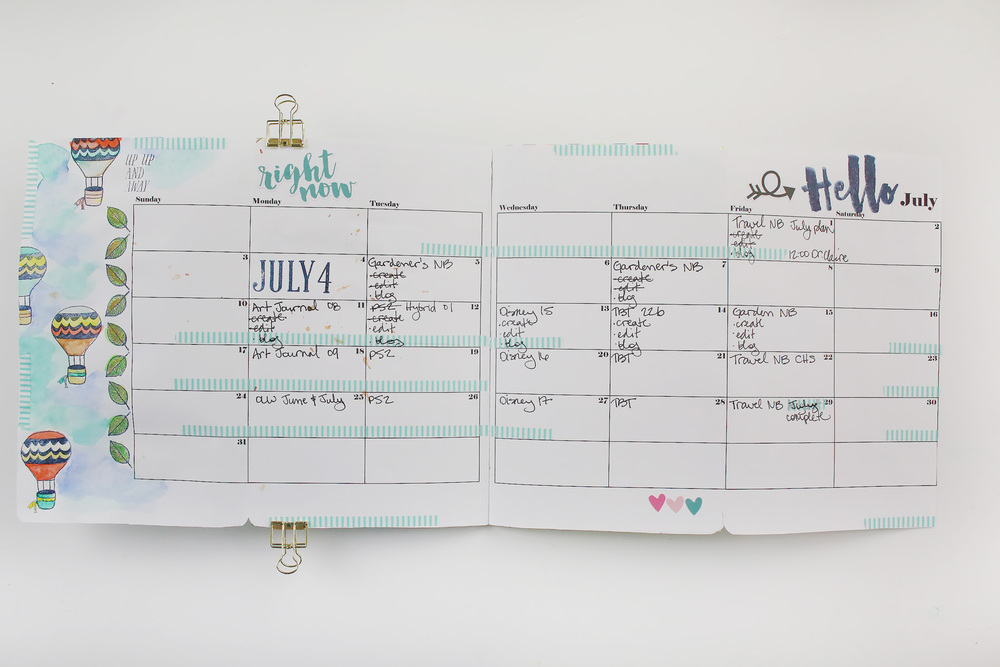 UP UP
AND
AWAY
right
now
Hello July
Sunday Monday Tuesday Wednesday Thursday Friday Saturday
Travel NB July plan 1 2
create
edit
blog 12:00 Dr. Claire
3 JULY 4 4 Gardener's NB 5 6 Gardener's NB 7 8 9
create create
edit edit
blog blog
10 Art Journal 08 11 PS2 Hybrid 01 12 Disney 15 13 TBT 226 14 Garden NB 15 16
create create create create create
edit edit edit edit edit
blog blog blog blog blog
17 Art Journal 09 18 PS2 19 Disney 16 20 TBT 21 Travel NB CH5 22 23
24 OLW June & July 25 PS2 26 Disney 17 27 TBT 28 Travel NB July 29 30
complete
31